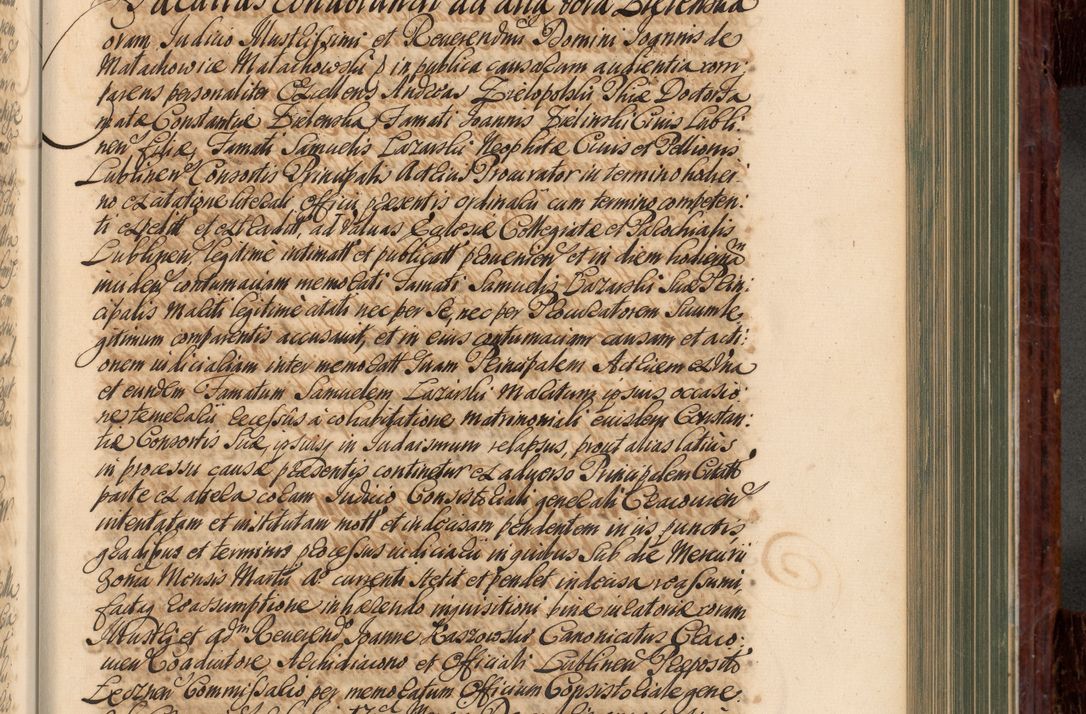 Facultas Convolandi ad alia vota Zielenska
oram Judicio Illustrissimi et Reverendmi Domini Joannis de
Małachowice Małachowski p in publica causarum audientia com:
parens personaliter Excellens Andreas Zielopolski Phiae Doctor Fa
matae Constantiae Zielenska, Famati Joannis Zielinski Civis Lubli:
nen filiae, Famati Samuelis Lazarski Neophitae Civis et Pellionis
Lublinen Consortis Principalis Actricis Procurator in termino hodier
no ex citatione literali Officii praesentis ordinarii cum termino competen:
ti extradit et extradita, ad Valvas Ecclesiae Collegiatae et Parochialis
Lublinen legitime intimatt et publicatt proveniens et in diem hodiernam
inciden contumaciam memorati Famati Samuelis Lazarski Suae Prin:
cipalis Mariti legitime citati nec per Se, nec per Procuratorem Suum le
gitimum comparentis accusavit, et in eius contumaciam causam et acti:
onem iudicialiam inter memoratt Suam Principalem Actricem ex una
et eundem Famatum Samuelem Lazarski Maritum ipsius, occasio
ne temerarii recessus a cohabitatione matrimoniali eiusdem Constan:
tiae Consortis Suae, ipsiusq in Judaismum relapsus, prout alias latius
in processu causae praesentis continetur ex adverso Principalem Citatt
parte ex altera coram Judicio Consistoriali generali Cracovien
intentatam et institutam mott et indecisam pendentem in iis punctis,
gradibus et terminis processus iudiciarii in quibus Sub die Mercurii
30ma Mensis Martii Ao currenti Stetit et pendet indecisa reassumi,
factaq reassumptione inhaerendo inquisitioni binae iuratoriae coram
Illustri et adm Reverendo Joanne Raszowski Canonicatus Craco:
vien Coadiutore Archidiacono et Officiali Lublinen Praeposito
Leczнen Commissario per memoratum Officium Consistoriale gene